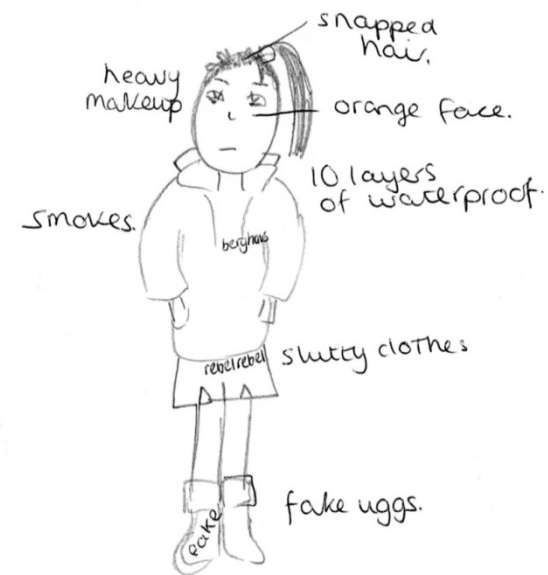 snapped
hair.
heavy
makeup
orange face.
10 layers
of waterproof.
smokes.
berghaus
rebelrebel
slutty clothes
fake uggs.
fake